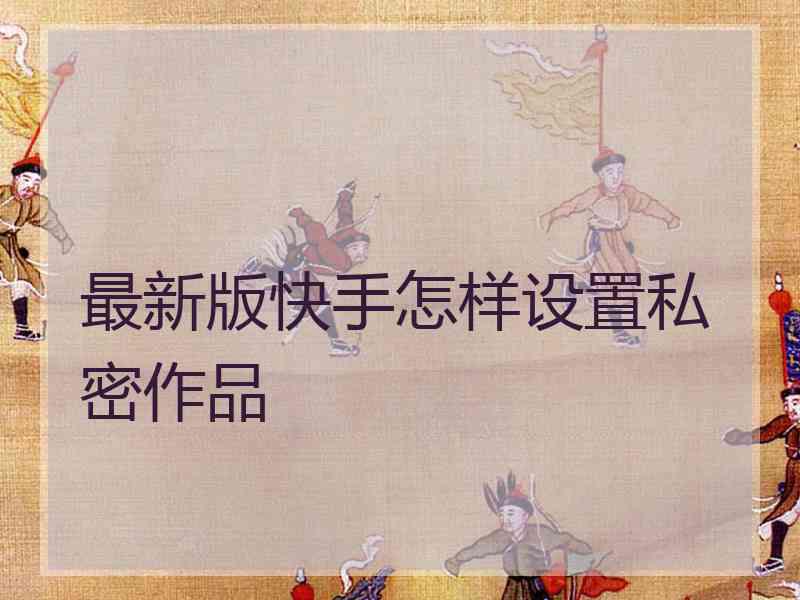 最新版快手怎样设置私
密作品